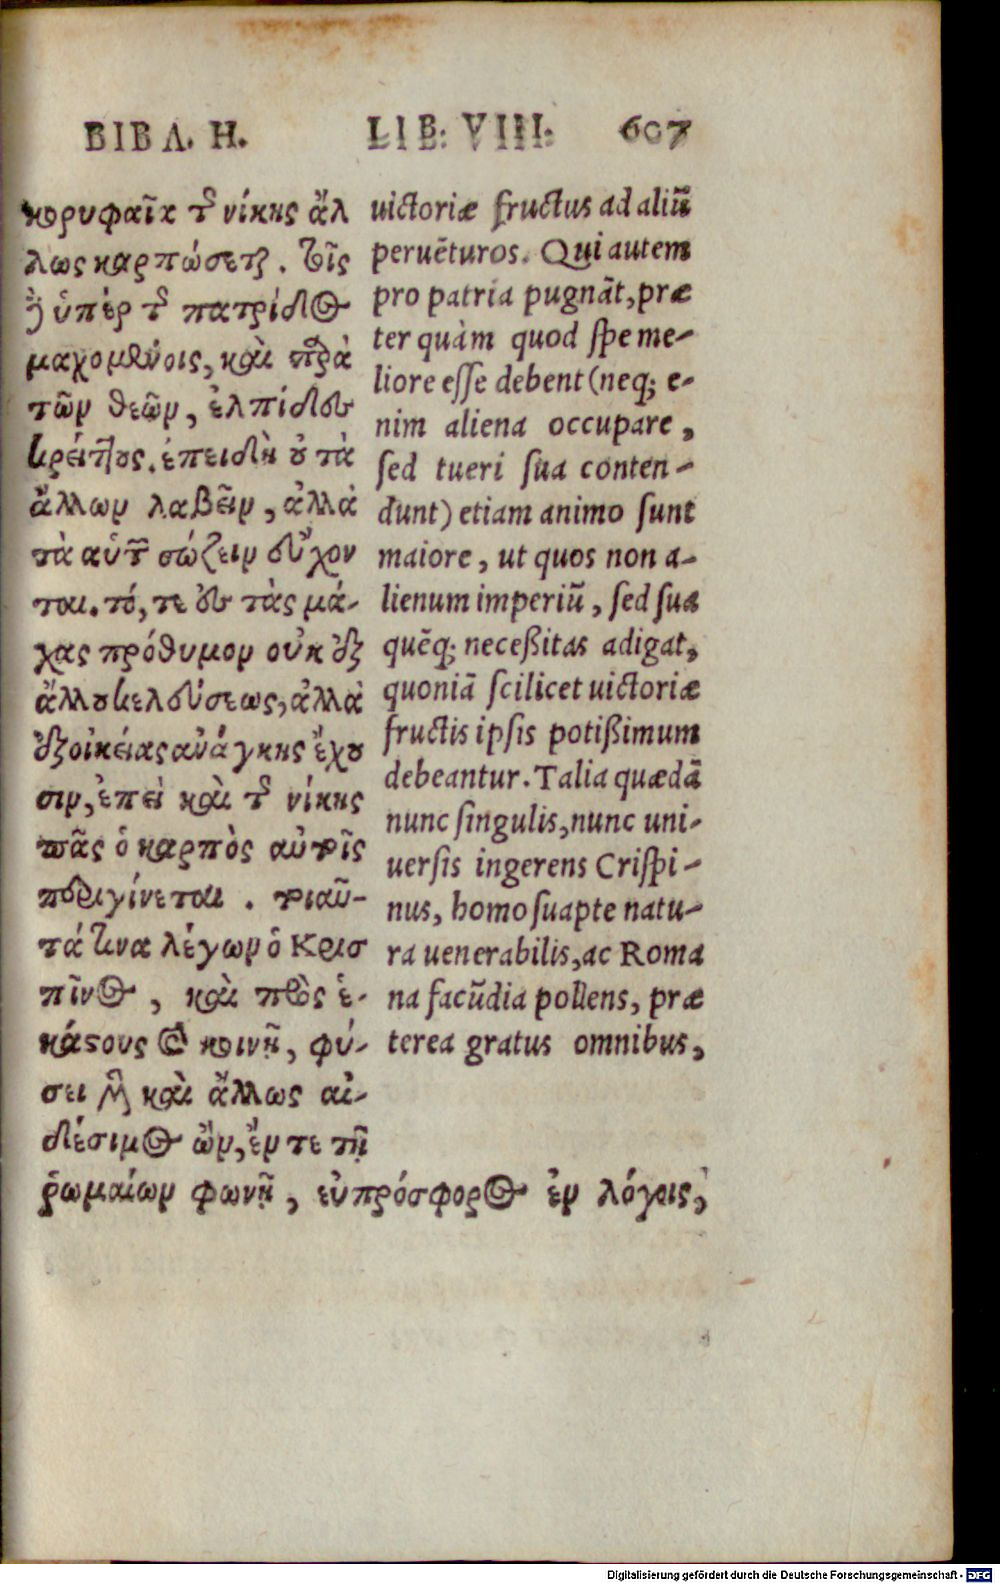 ΒΙΒΛ. Η. LIB. VIII. 607
κορυφαῖα τ͂ νίκης ἄλ
λως καρπώσεται. τοῖς
δὲ ὑπὲρ τ͂ πατρίδος
μαχομένοις, καὶ παρὰ
τῶν θεῶν, ἐλπίδες
κρείττους. ἐπειδὴ ȣ τὰ
ἄλλων λαβεῖν, ἀλλὰ
τὰ αὑτῶν σώζειν εὔχον
ται. τό, τε ἐς τὰς μά-
χας πρόθυμον οὐκ ἐξ
ἄλλȣ κελεύσεως, ἀλλὰ
ἐξ οἰκείας ἀνάγκης ἔχȣ
σιν, ἐπεὶ καὶ τ͂ νίκης
πᾶς ὁ καρπὸς αὐτοῖς
περιγίνεται. τοιαῦ-
τά τινα λέγων ὁ Κρισ
πῖνος, καὶ πρὸς ἑ-
κάστους καὶ κοινῇ, φύ-
σει μὲν καὶ ἄλλως αἰ-
δέσιμος ὢν, ἔν τε τῇ
ῥωμαίων φωνῇ, εὐπρόσφορος ἐν λόγοις,
uictoriæ fructus ad aliũ
peruẽturos. Qui autem
pro patria pugnãt, præ
ter quàm quod spe me-
liore esse debent (neq; e-
nim aliena occupare,
sed tueri sua conten-
dunt) etiam animo sunt
maiore, ut quos non a-
lienum imperiũ, sed sua
quẽq; neceßitas adigat,
quoniã scilicet uictoriæ
fructis ipsis potißimum
debeantur. Talia quædã
nunc singulis, nunc uni-
uersis ingerens Crispi-
nus, homo suapte natu-
ra uenerabilis, ac Roma
na facũdia pollens, præ
terea gratus omnibus,
Digitalisierung gefördert durch die Deutsche Forschungsgemeinschaft - DFG